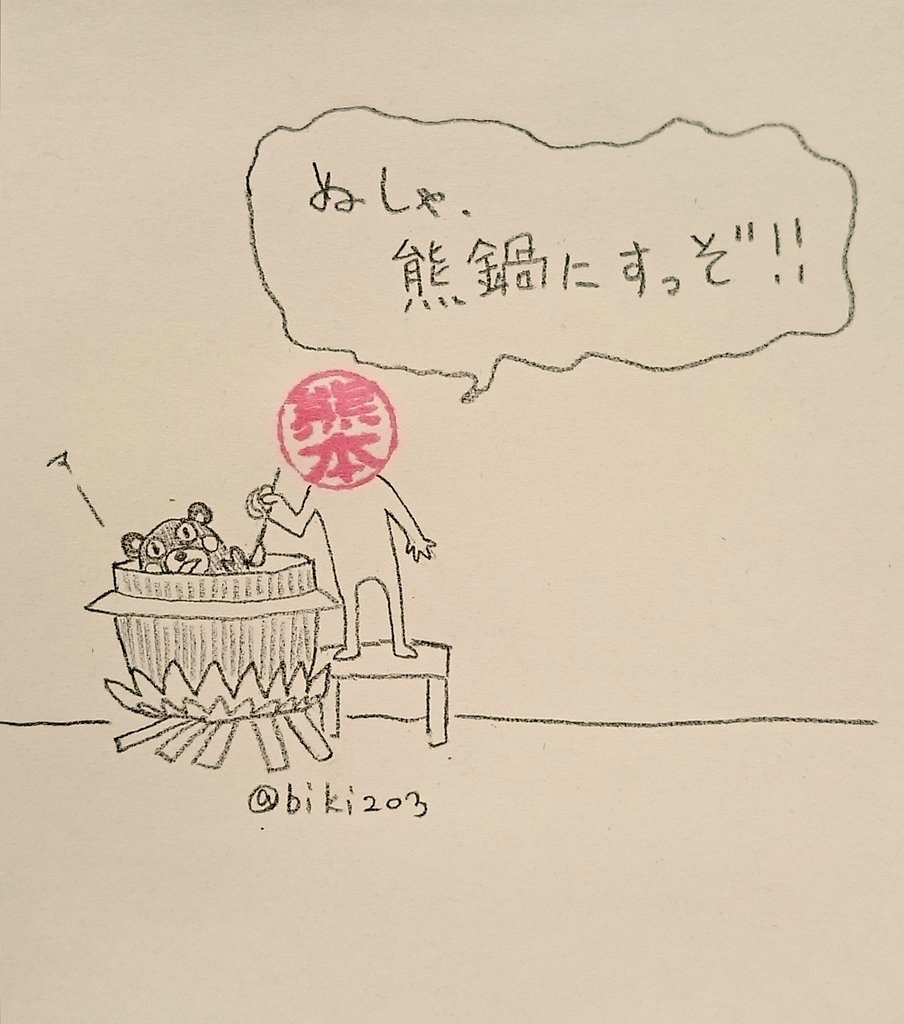 ぬしゃ.
熊鍋にすっぞ!!
熊本
@biki203